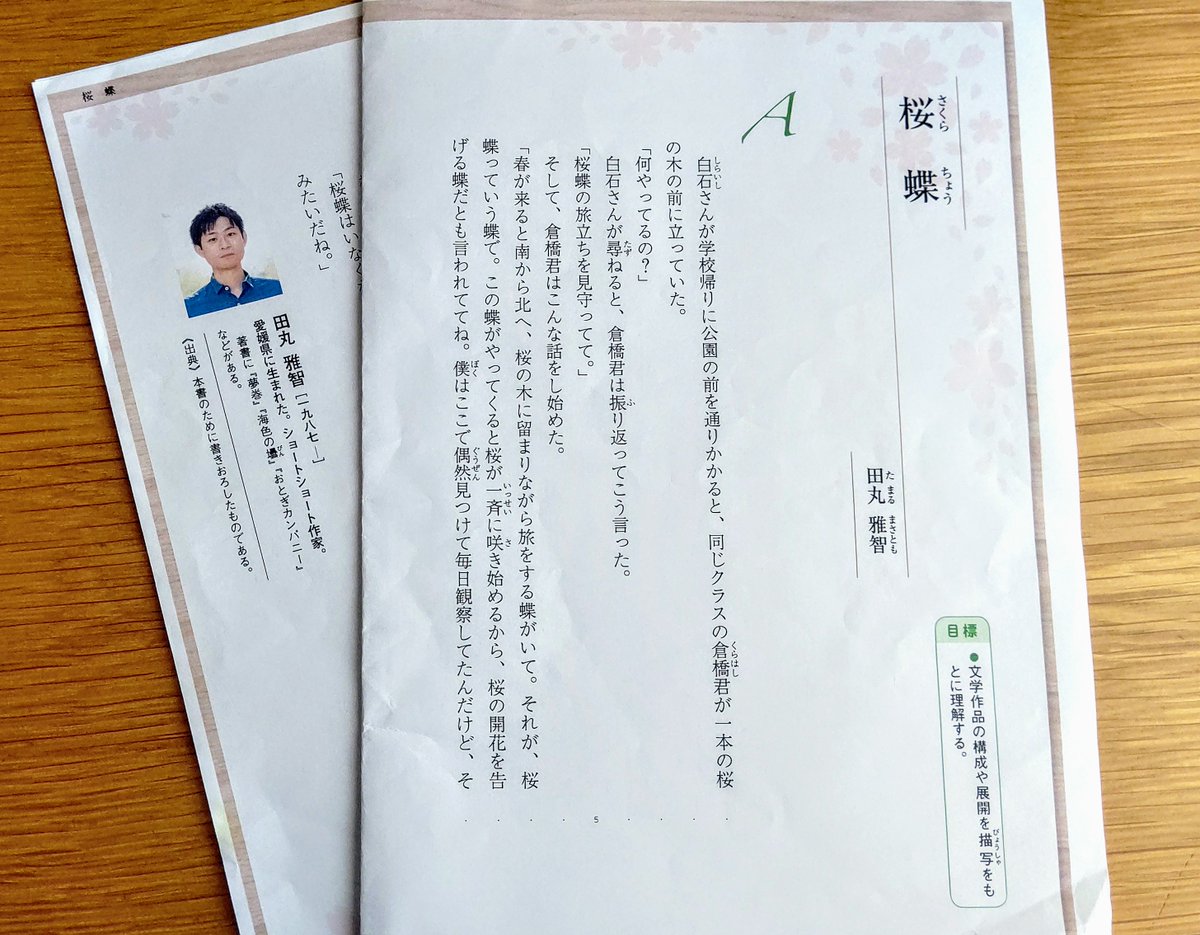 桜蝶
さくら ちょう
田丸 雅智
た まる まさとも
目標
●文学作品の構成や展開を描写をも
びょうしゃ
とに理解する。
A
白石さんが学校帰りに公園の前を通りかかると、同じクラスの倉橋君が一本の桜
しらいし
くらはし
の木の前に立っていた。
「何やってるの?」
白石さんが尋ねると、倉橋君は振り返ってこう言った。
たず
ふ
「桜蝶の旅立ちを見守ってて。」
そして、倉橋君はこんな話をし始めた。
「春が来ると南から北へ、桜の木に留まりながら旅をする蝶がいて。それが、桜
蝶っていう蝶で。この蝶がやってくると桜が一斉に咲き始めるから、桜の開花を告
いっせい
さ
げる蝶だとも言われててね。僕はここで偶然見つけて毎日観察してたんだけど、そ
ぼく
ぐうぜん
5
桜 蝶
「桜蝶はいなくな
みたいだね。」
田丸 雅智[一九八七―]
愛媛県に生まれた。ショートショート作家。
著書に『夢巻』『海色の壜』『おとぎカンパニー』
びん
などがある。
〈出典〉本書のために書きおろしたものである。